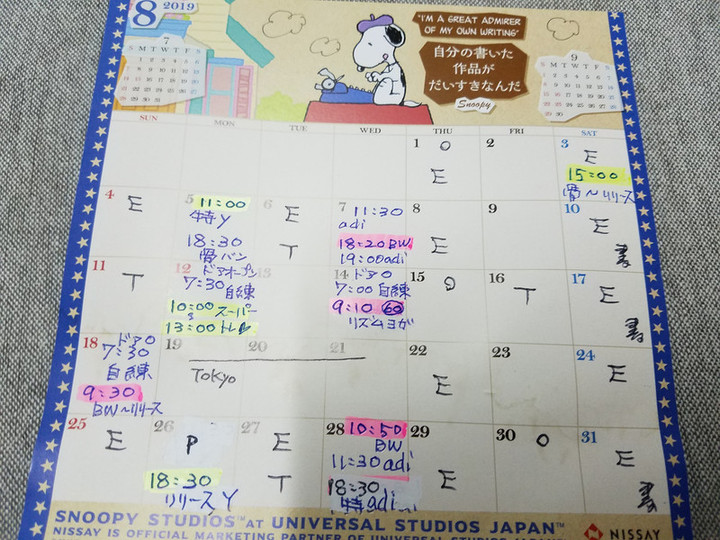 8 2019
7
S M T W T F S
"I'M A GREAT ADMIRER
OF MY OWN WRITING"
自分の書いた
作品が
だいすきなんだ
Snoopy
9
S M T W T F S
SUN MON TUE WED THU FRI SAT
1 O
E
2
3
E
15:00
骨〜リリース
4
E
5
11:00
特Y
18:30
骨バン
6
E
T
7
11:30
adi
18:20 BW
19:00 adi
8
E
9
10
E
11
T
12
ドアオープン
7:30
自練
10:00 スーパー
13:00 トレ
13
14
ドアO
7:00 自練
9:10 60
リズムヨガ
15
O
16
T
17
E
18
ドアO
7:30
自練
9:30
BW〜リリース
19
Tokyo
20
21
22
E
23
24
E
25
E
26
P
18:30
リリースY
27
E
T
28
10:50
BW
11:30 adi
18:30
特adi
29
E
30
O
31
E
SNOOPY STUDIOS™ AT UNIVERSAL STUDIOS JAPAN™
NISSAY IS OFFICIAL MARKETING PARTNER OF UNIVERSAL STUDIOS
NISSAY